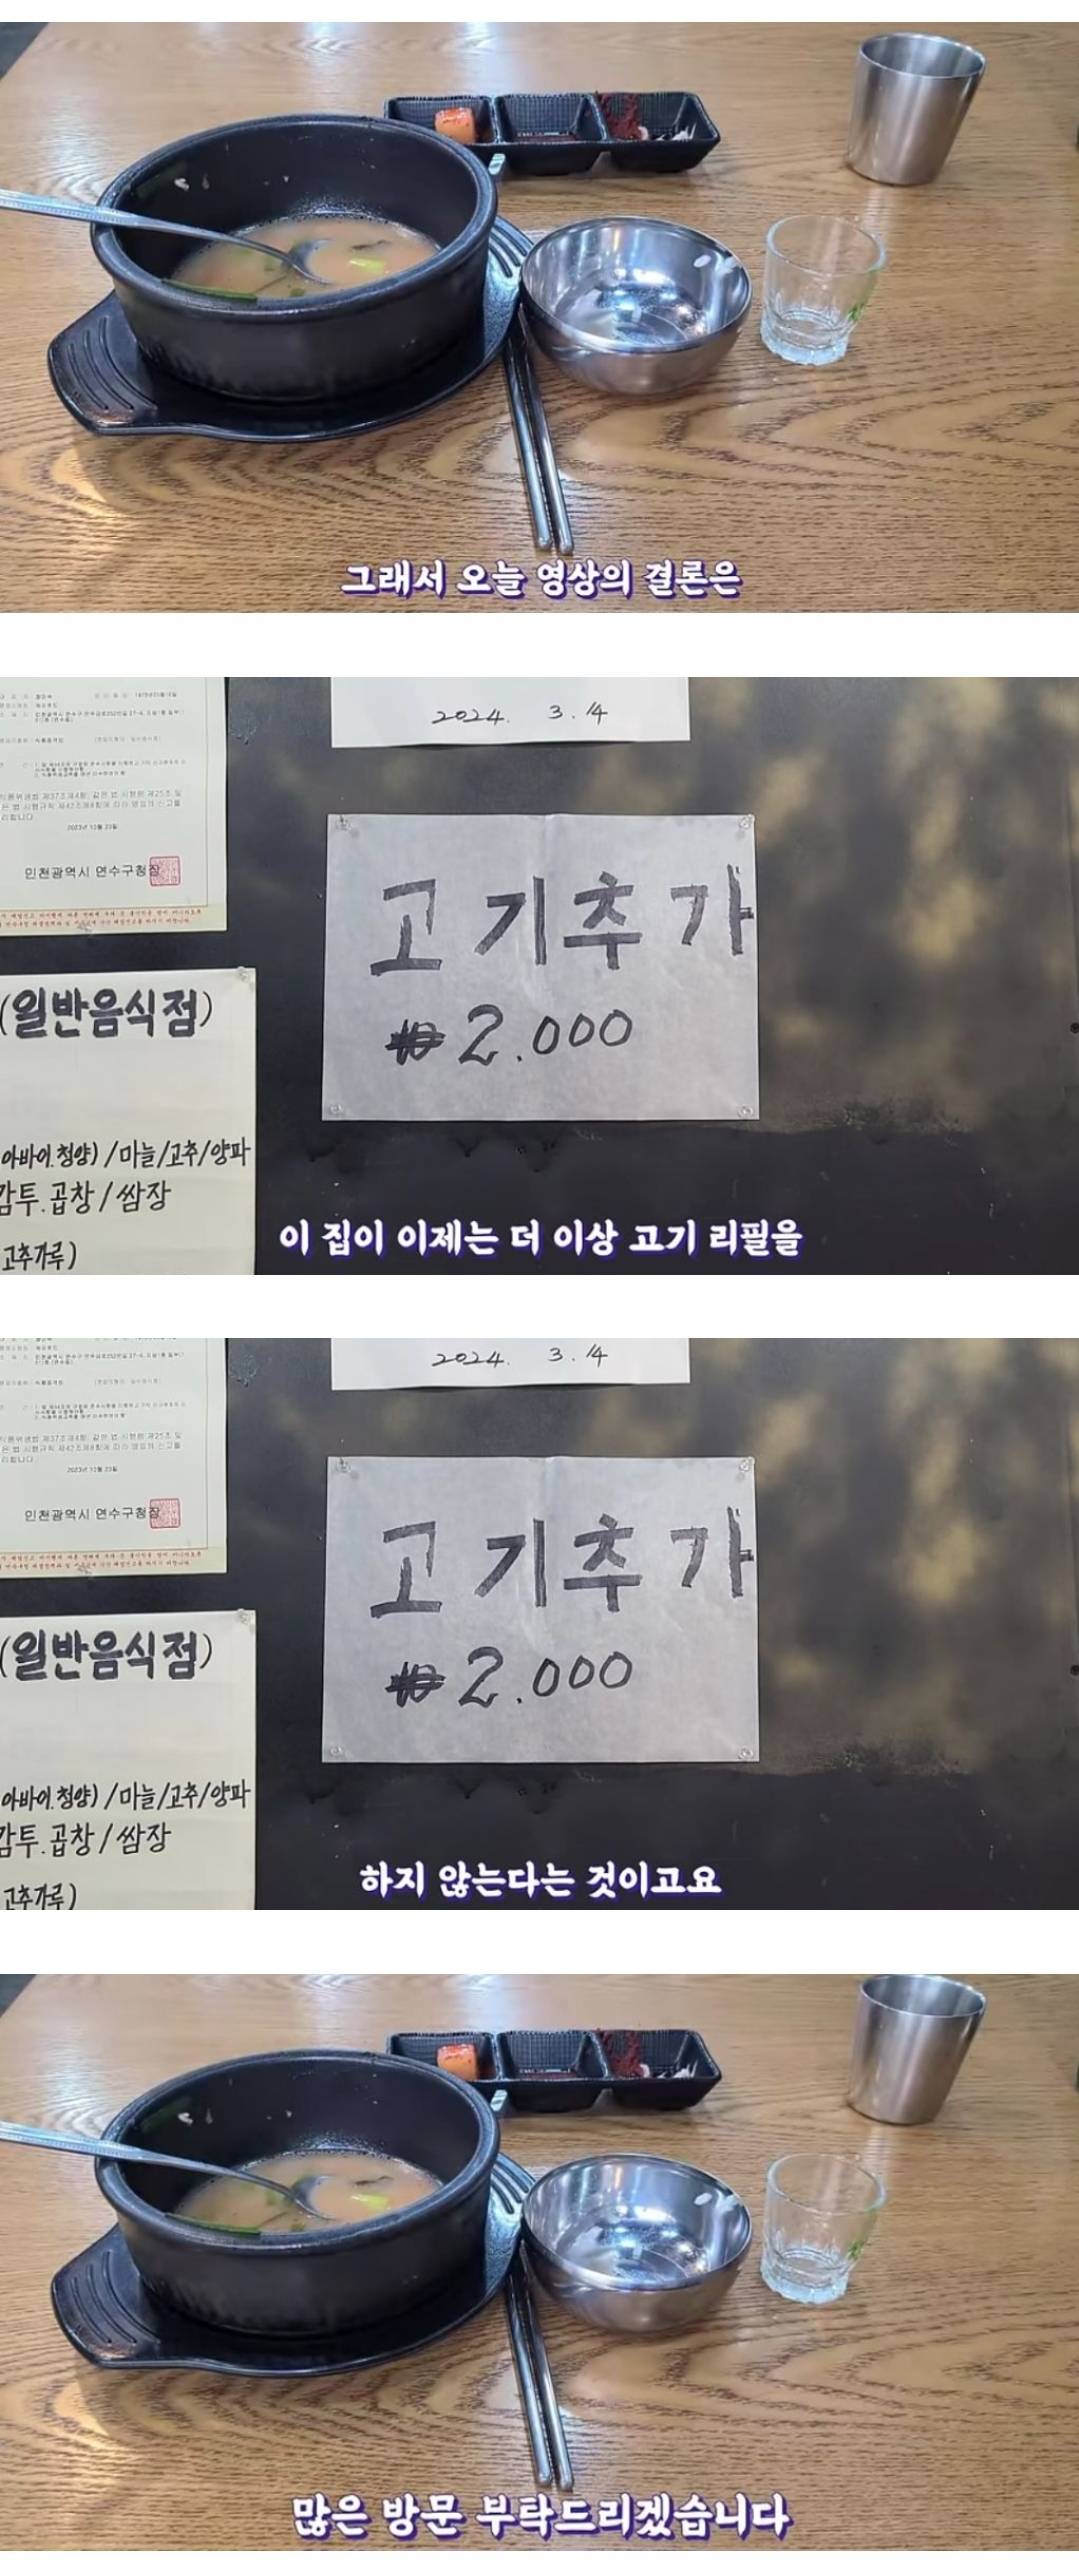 그래서 오늘 영상의 결론은
2024. 3. 14
2023년 10월 23일
인천광역시 연수구청장
고기추가
₩2.000
(일반음식점)
아바이.청양) /마늘/고추/양파
감투.곱창/쌈장
고추가루)
이 집이 이제는 더 이상 고기 리필을
2024. 3. 14
2023년 10월 23일
인천광역시 연수구청장
고기추가
₩2.000
(일반음식점)
아바이.청양) /마늘/고추/양파
감투.곱창/쌈장
고추가루)
하지 않는다는 것이고요
많은 방문 부탁드리겠습니다